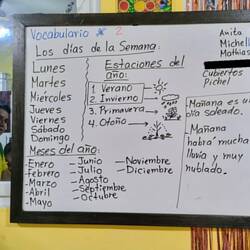 Vocabulario # 2
Los días de la Semana:
Lunes
Martes
Miércoles
Jueves
Viernes
Sábado
Domingo
Estaciones del
año:
1. Verano
2. Invierno
3. Primavera
4. Otoño
Meses del año:
-Enero
-Febrero
-Marzo
-Abril
-Mayo
-Junio
-Julio
-Agosto
-Septiembre
-Octubre
-Noviembre
-Diciembre
Anita
Michell
Mathias
Cubiertos
Pichel
Mañana es un
día soleado.
Mañana
habrá mucha
lluvia y muy
nublado.